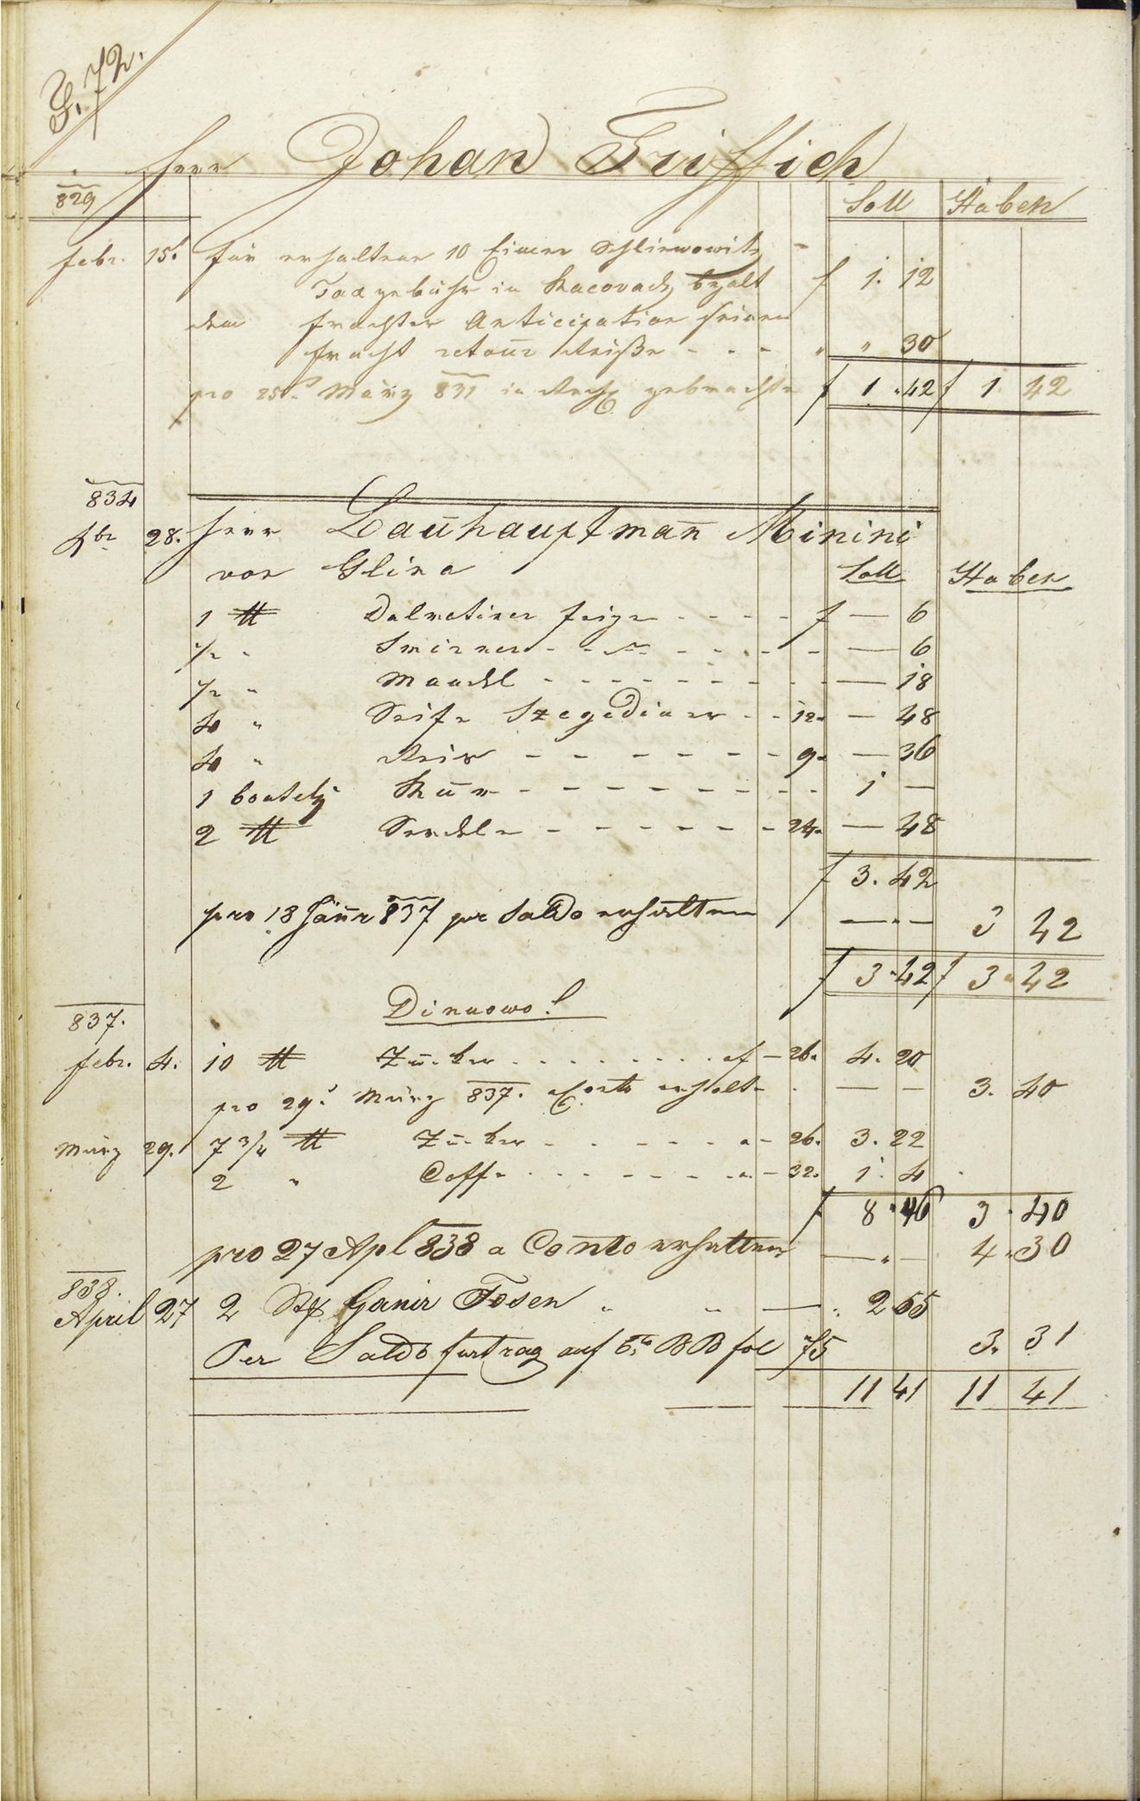 72.
Herr Johan
829 Soll Haben
Febr. 15t für erhaltene 10 Eimer Schliwowitz -
Taxgebühr in bezalt f 1. 12
dem Frächter Anticipation seiner
Fracht retour Reiße - - - " " 30
pro 25t März 831 in gebracht f 1. 42 f 1. 42
834
28. Herr Hauptman Minini
von Glina Soll Haben
1 ℔ Dalmatiner Feigen - - - - f — 6
1/2 " Smirner - - - - - — 6
1/2 " Mandl - - - - - — 18
4 " Seife Szegediner - - 12 — 48
4 " Reis - - - - - 9 — 36
1 Rum - - - - - 1 —
2 ℔ - - - - - 24 — 48
f 3. 42
pro 18 Jänr 837 pr Saldo erhalten — " — 3 42
f 3. 42 f 3 " 42
837.
Febr. 4. 10 ℔ Zucker . . . . . . af — 26 4. 20
pro 29t März 837. Conto erhalten . — — 3. 40
März 29. 7 3/4 ℔ Zucker - - - - - a - 26. 3. 22
2 " Caffe - - - - - a - 32. 1. 4
f 8. 46 3. 40
pro 27 Apl 838 a Conto erhalten — " — 4. 30
838.
April 27 2 " " — . 2 55
Per Saldo furtrag auf BB fol 75 3. 31
11 41 11 41